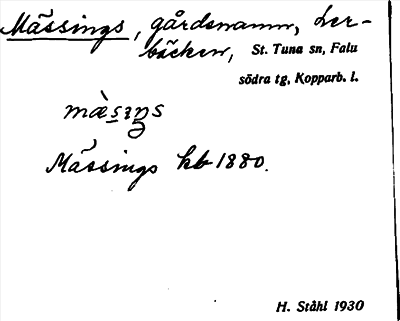 Mässings, gårdsnamn, Ler-
bäcken, St. Tuna sn, Falu
södra tg, Kopparb. l.
Mässings hb 1880.
H. Ståhl 1930